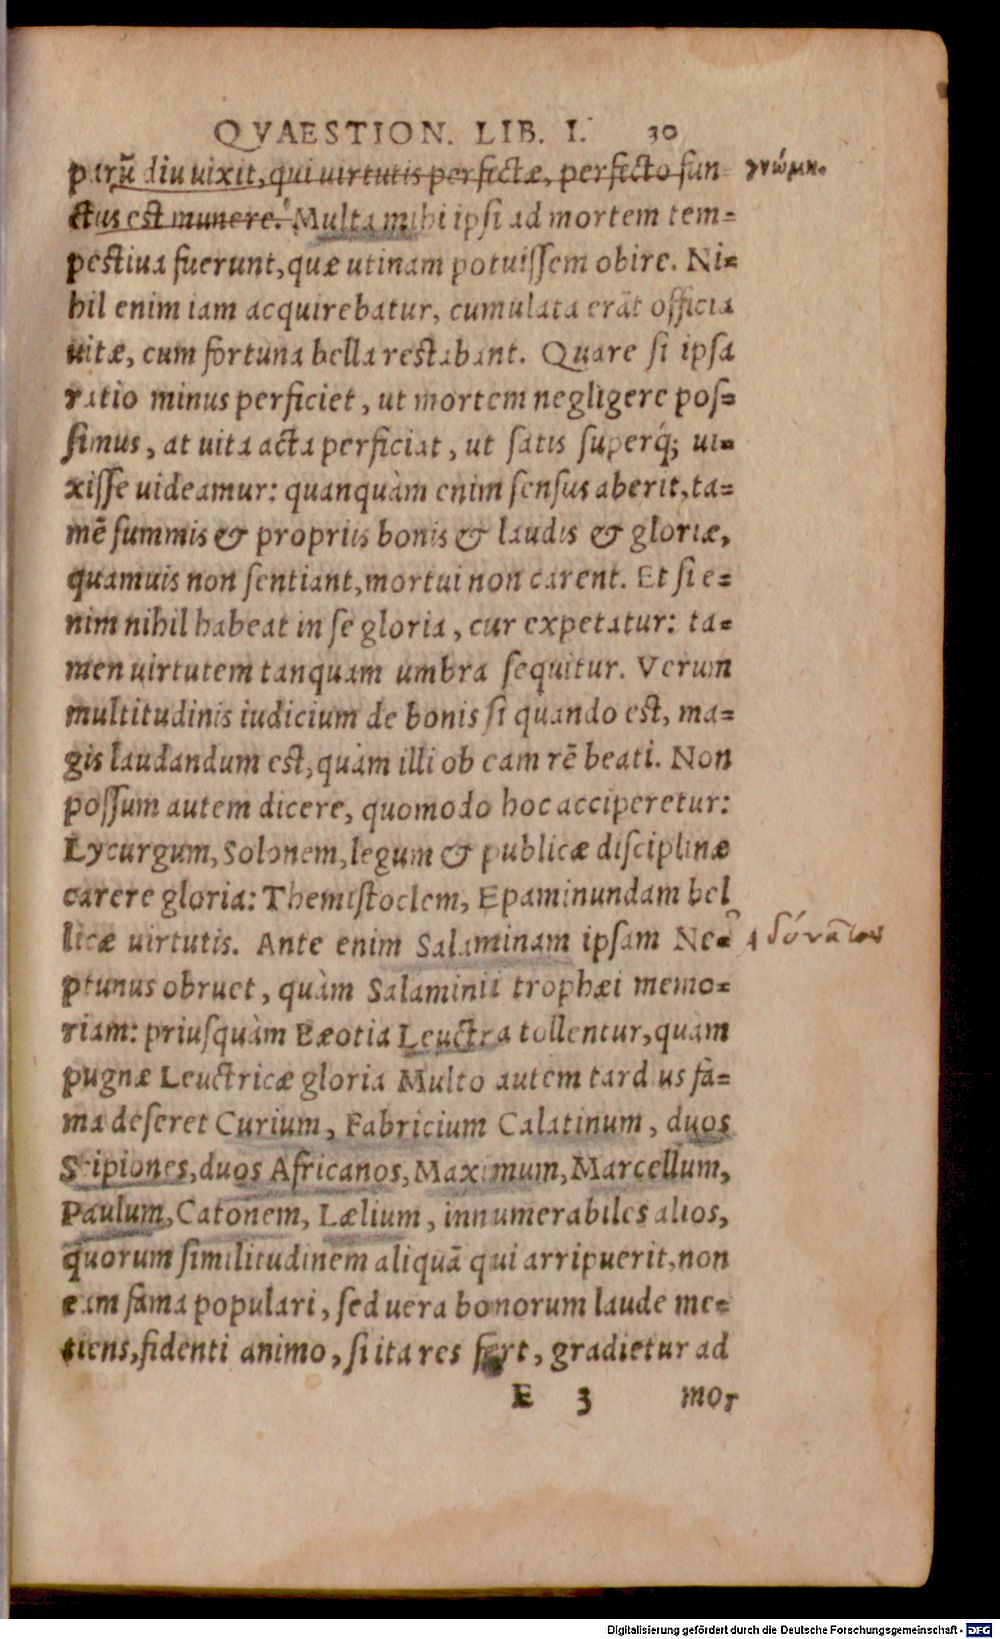 QVAESTION. LIB. I. 30
parū diu uixit, qui uirtutis perfectæ, perfecto fun γνώμη.
ctus est munere. Multa mihi ipsi ad mortem tem=
pestiua fuerunt, quæ utinam potuissem obire. Ni=
hil enim iam acquirebatur, cumulata erāt officia
uitæ, cum fortuna bella restabant. Quare si ipsa
ratio minus perficiet, ut mortem negligere pos=
simus, at uita acta perficiat, ut satis superq́; ui=
xisse uideamur: quanquàm enim sensus aberit, ta=
mē summis & propriis bonis & laudis & gloriæ,
quamuis non sentiant, mortui non carent. Et si e=
nim nihil habeat in se gloria, cur expetatur: ta=
men uirtutem tanquam umbra sequitur. Verum
multitudinis iudicium de bonis si quando est, ma=
gis laudandum est, quàm illi ob eam rē beati. Non
possum autem dicere, quomodo hoc acciperetur:
Lycurgum, Solonem, legum & publicæ disciplinæ
carere gloria: Themistoclem, Epaminundam bel
licæ uirtutis. Ante enim Salaminam ipsam Ne=
ptunus obruet, quàm Salaminii trophæi memo=
riam: priusquàm Bæotia Leuctra tollentur, quam
pugnæ Leuctricæ gloria Multo autem tard us fa=
ma deseret Curium, Fabricium Calatinum, duos
Scipiones, duos Africanos, Maximum, Marcellum,
Paulum, Catonem, Lælium, innumerabiles alios,
quorum similitudinem aliquā qui arripuerit, non
eam fama populari, sed uera bonorum laude me=
tiens, fidenti animo, si ita res fert, gradietur ad
E 3 mor
Digitalisierung gefördert durch die Deutsche Forschungsgemeinschaft - DFG